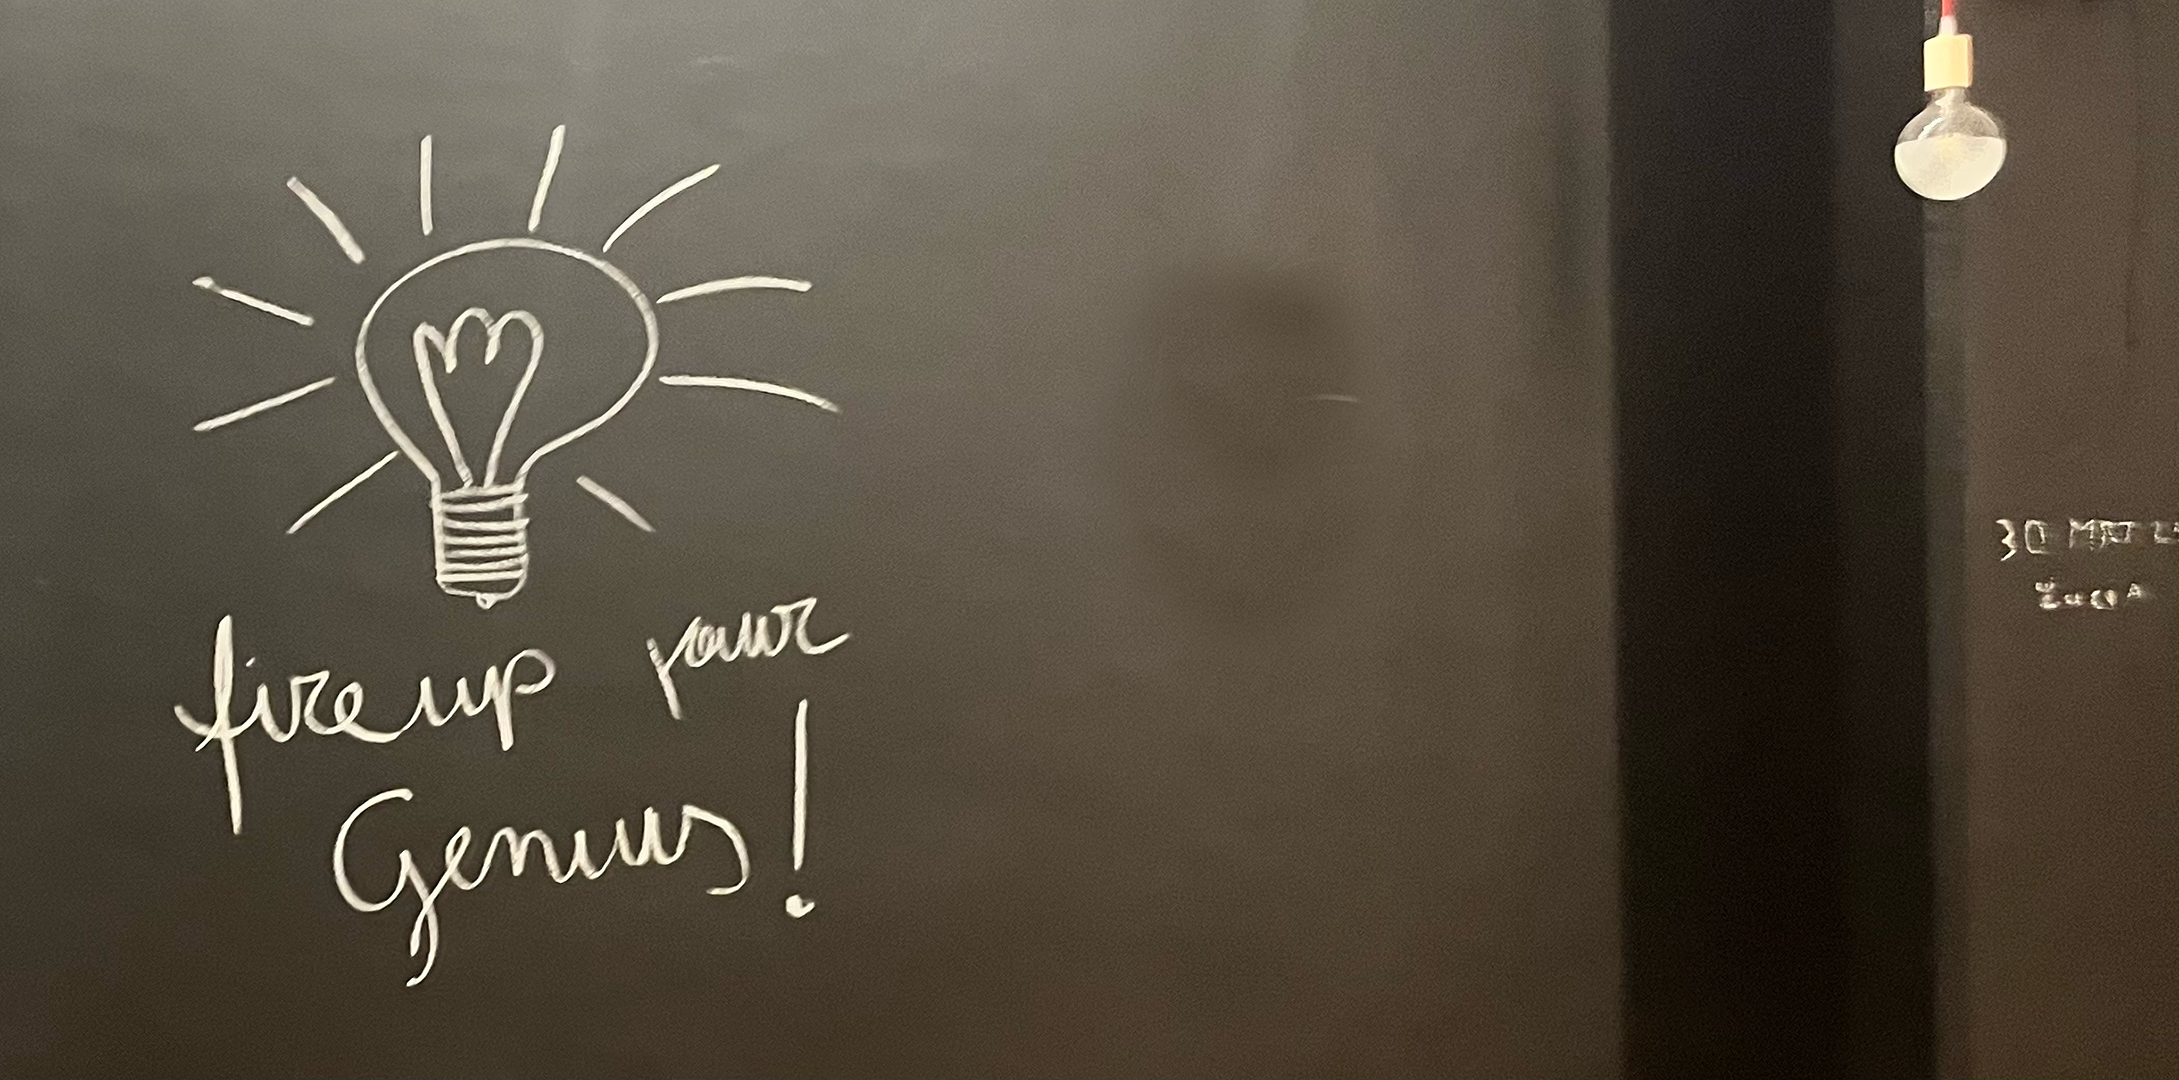 fire up your
Genius!